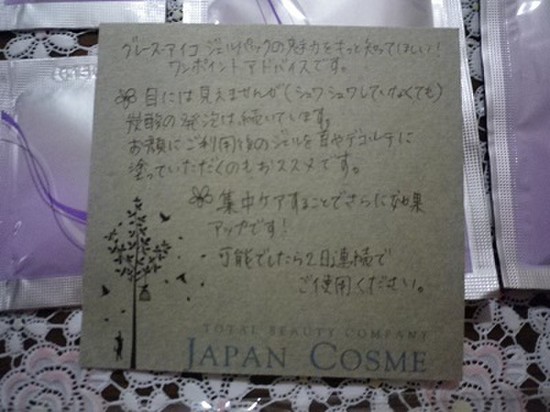 グレース・アイコ ジェルパックの魅力をもっと知ってほしい！
ワンポイントアドバイスです。
目には見えませんが（シュワシュワしていなくても）
炭酸の発泡は続いています。
お顔にご利用後のジェルを首やデコルテに
塗っていただくのもおススメです。
集中ケアすることでさらに効果
アップです！
可能でしたら2日連続で
ご使用ください。
TOTAL BEAUTY COMPANY
JAPAN COSME